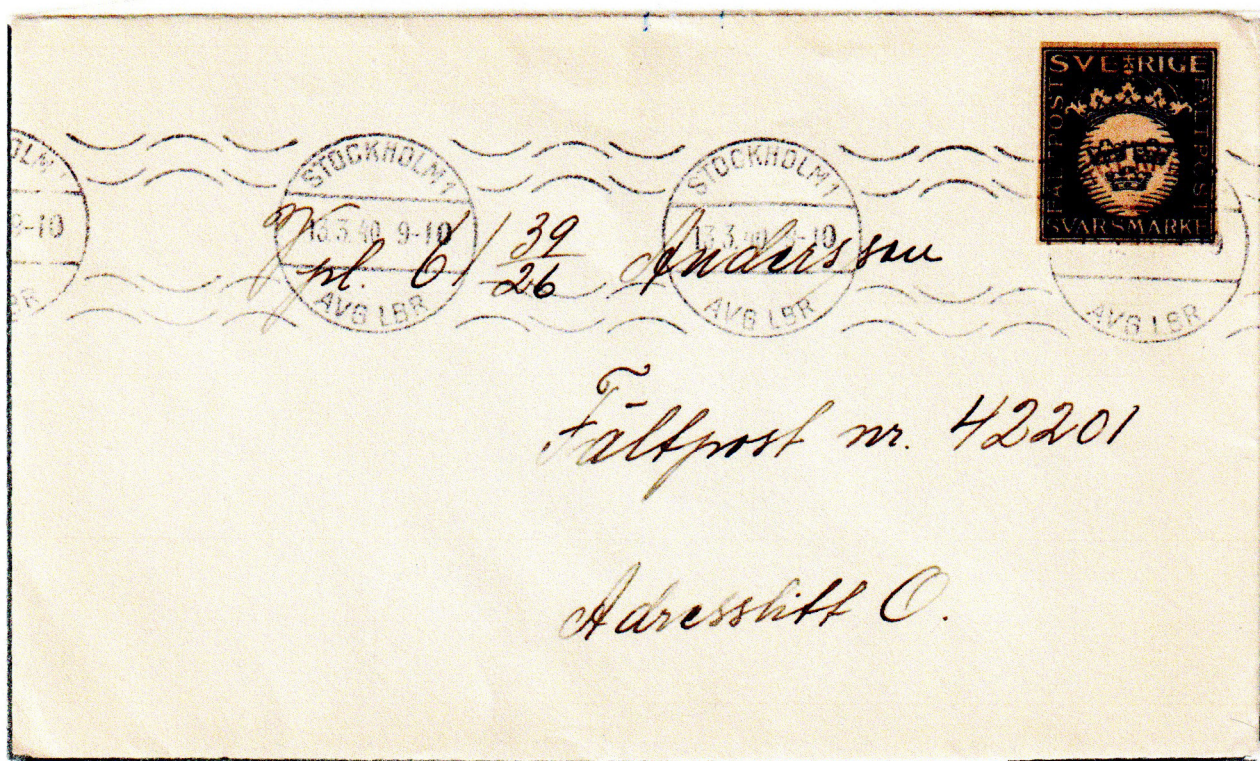 SVERIGE
FÄLTPOST
FÄLTPOST
SVARSMÄRKE
STOCKHOLM 1
13.3.40 9-10
AVG LBR
STOCKHOLM 1
13.3.40 9-10
AVG LBR
9-10
AVG LBR
Vpl. 61 39/26 Andersson
Fältpost nr. 42201
Adresslitt O.